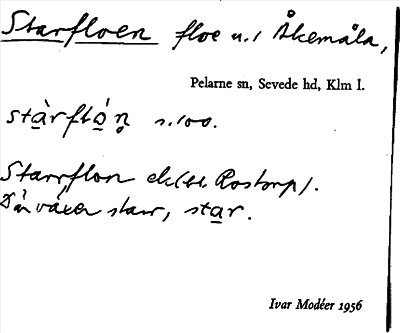 Starfloen floe u./ Åkemåla,
Pelarne sn, Sevede hd, Klm l.
stàrfló̜n̥ s. 100.
Starrflon ek(bl. Rostorp).
Där växer starr, star.
Ivar Modéer 1956